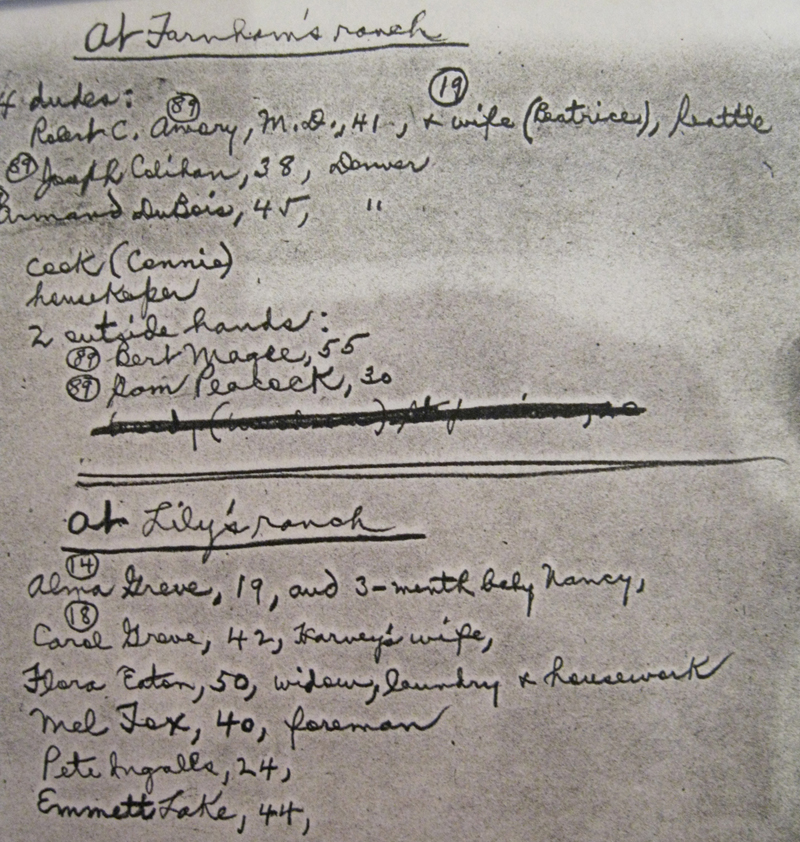 At Farnham's ranch
4 dudes:
89 19
Robert C. Amory, M.D., 41, & wife (Beatrice), Seattle
89 Joseph Colihan, 38, Denver
Armand DuBois, 45, "
cook (Connie)
housekeper
2 outside hands:
89 Bert Magee, 55
89 Sam Peacock, 30
At Lily's ranch
14
Alma Greve, 19, and 3-month baby Nancy,
18
Carol Greve, 42, Harvey's wife,
Flora Eaton, 50, widow, laundry & housework
Mel Fox, 40, foreman
Pete Ingalls, 24,
Emmett Lake, 44,